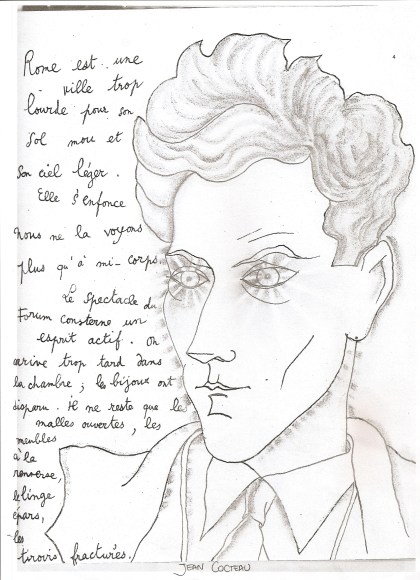 4
Rome est une
ville trop
lourde pour son
sol mou et
son ciel léger.
Elle s'enfonce
nous ne la voyons
plus qu'à mi-corps.
Le spectacle du
Forum consterne un
esprit actif. On
arrive trop tard dans
la chambre ; les bijoux ont
disparu. Il ne reste que les
malles ouvertes, les
meubles
à la
renverse,
le linge
épars,
les
tiroirs fracturés.
JEAN COCTEAU